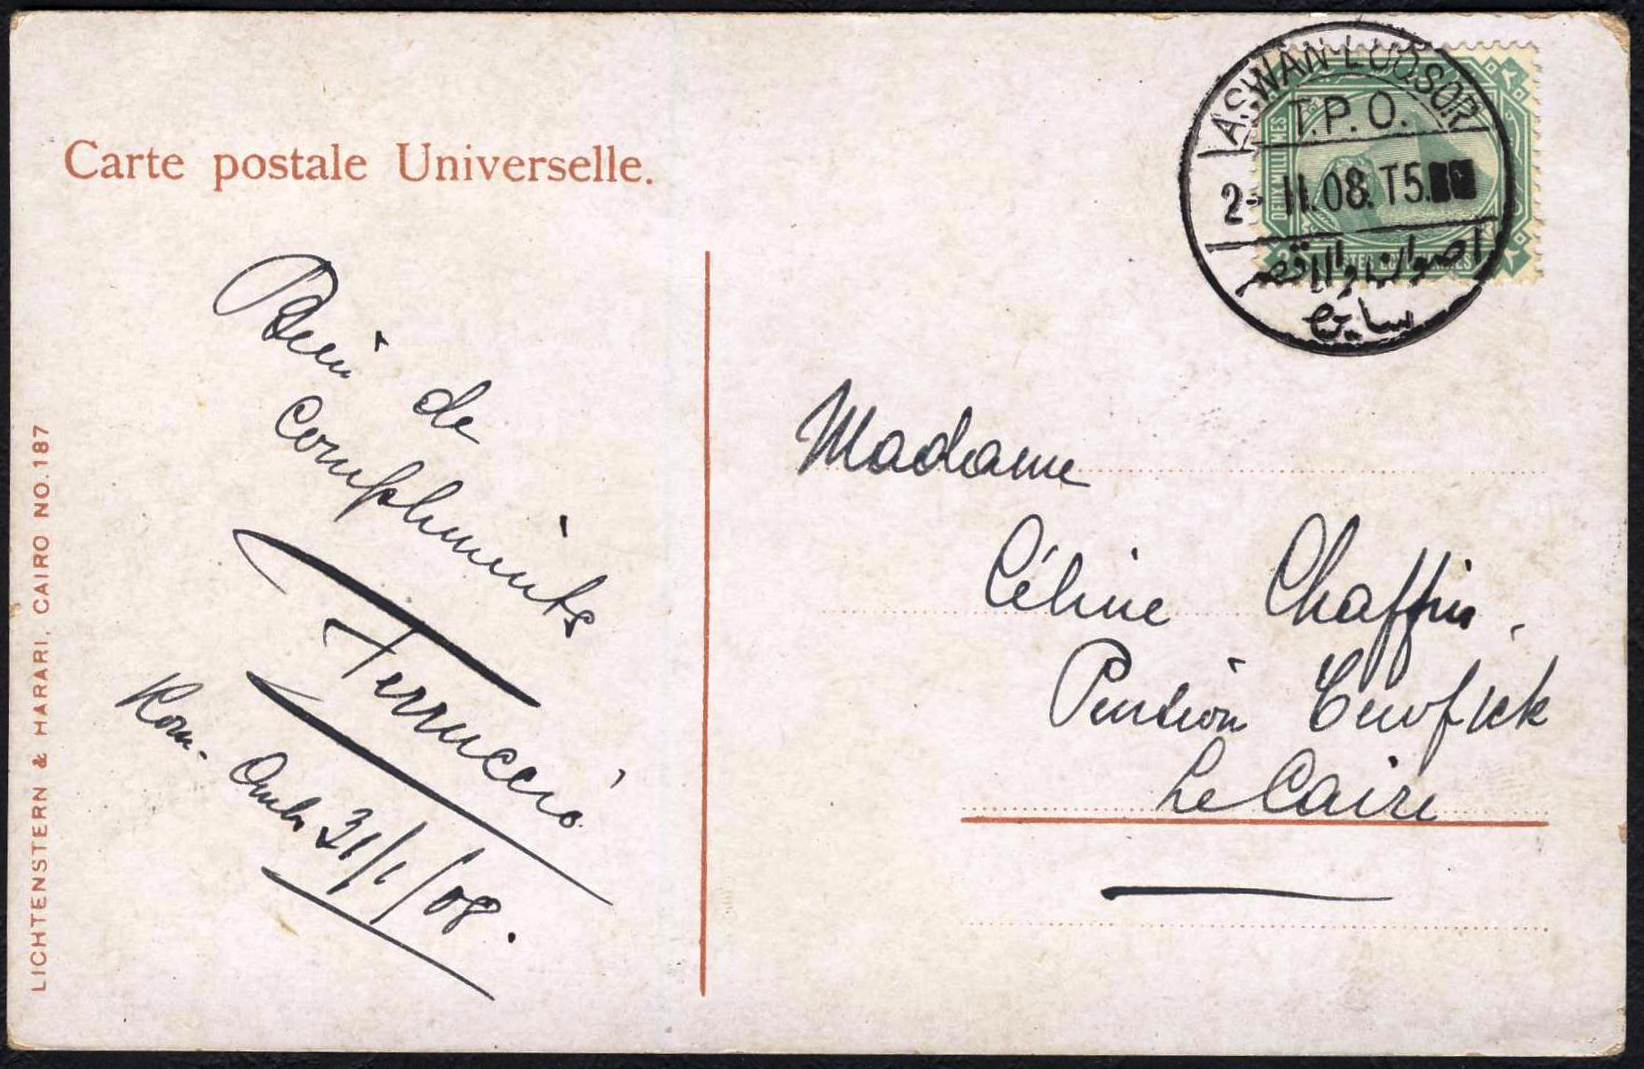 Carte postale Universelle.
LICHTENSTERN & HARARI, CAIRO NO. 187
ASWAN-LUQSOR
T.P.O.
2- II.08. T5.
اصوان والاقصر
DEUX MILLIEMES
de
Compliments
Ferruccio
Kom-Ombo 31/1/08.
Madame
Céline Chaffin,
Pension Tewfick
Le Caire